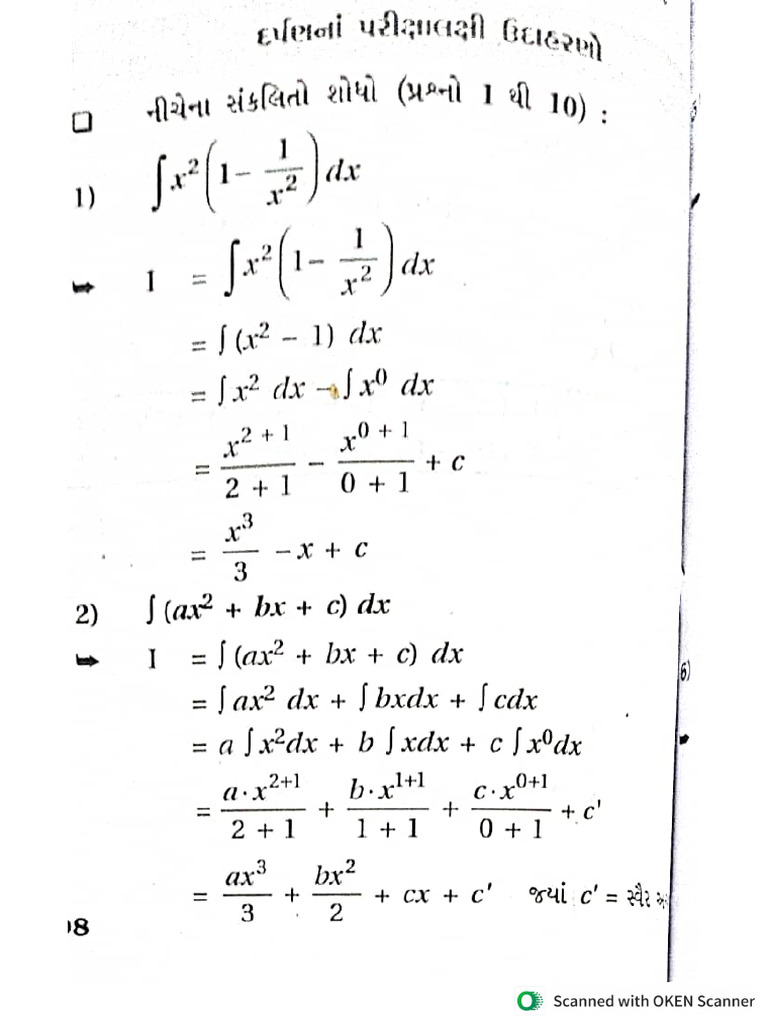 દર્પણનાં પરીક્ષાલક્ષી ઉદાહરણો
□ નીચેના સંકલિતો શોધો (પ્રશ્નો 1 થી 10) :
1) ∫x²(1 − 1/x²) dx
➡ I = ∫x²(1 − 1/x²) dx
= ∫(x² − 1) dx
= ∫x² dx − ∫x⁰ dx
= x^(2 + 1)/(2 + 1) − x^(0 + 1)/(0 + 1) + c
= x³/3 − x + c
2) ∫(ax² + bx + c) dx
➡ I = ∫(ax² + bx + c) dx
= ∫ax² dx + ∫bxdx + ∫cdx
= a∫x²dx + b∫xdx + c∫x⁰dx
= a·x^(2+1)/(2 + 1) + b·x^(1+1)/(1 + 1) + c·x^(0+1)/(0 + 1) + c'
= ax³/3 + bx²/2 + cx + c' જ્યાં c' = સ્વૈર
8
6)
Scanned with OKEN Scanner